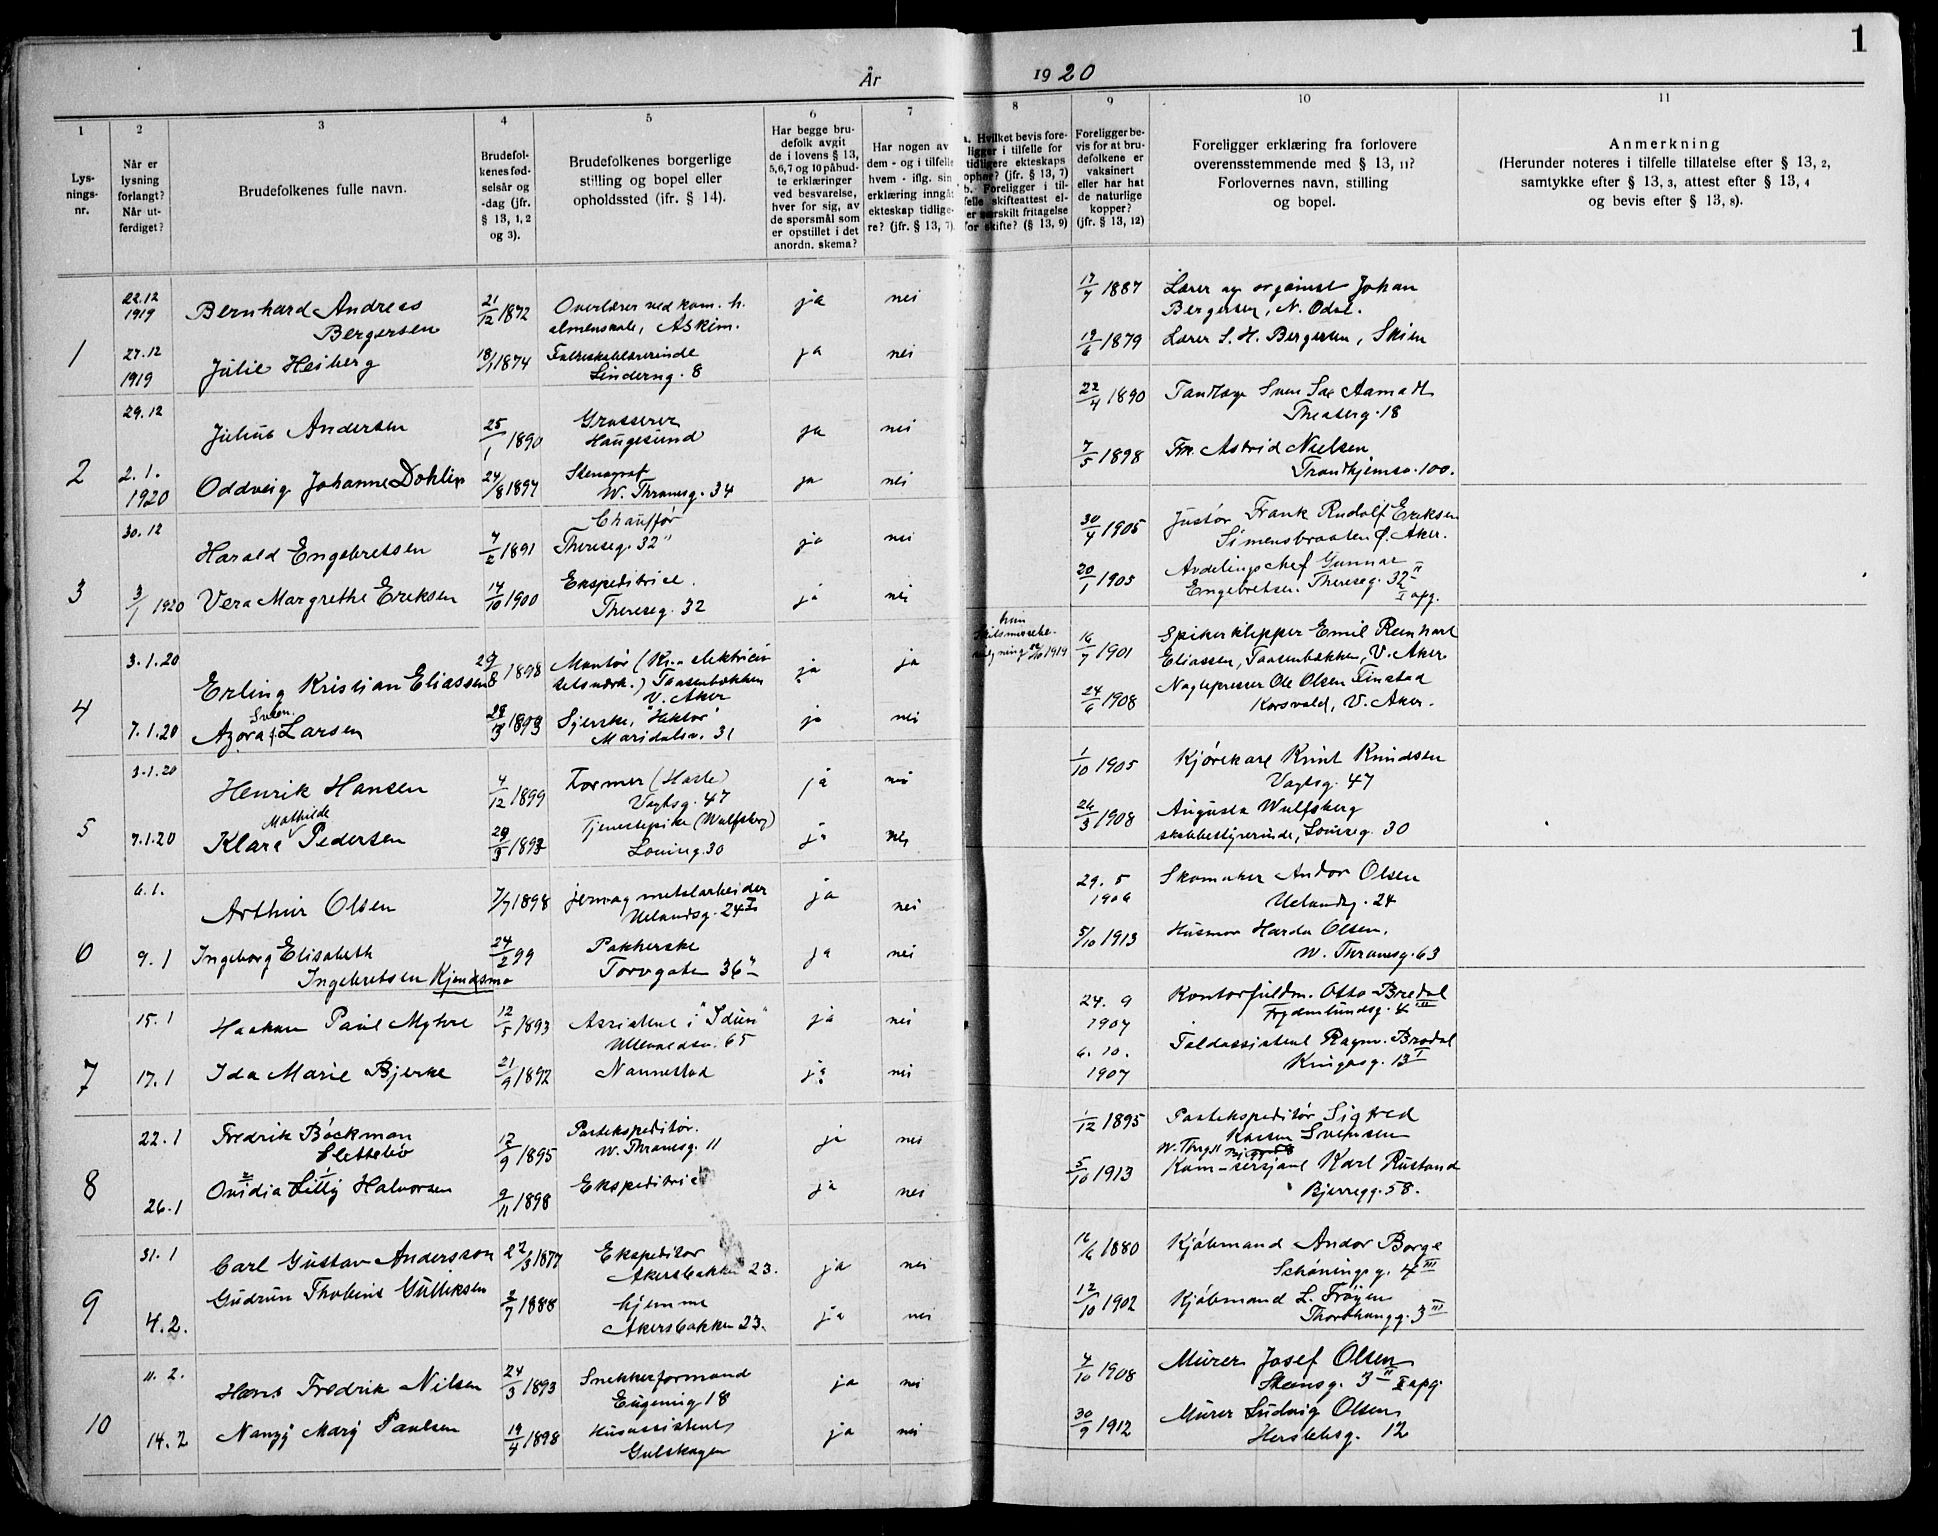 1
År 1920
1 2 3 4 5 6 7 8 9 10 11
Lys-
nings-
nr.
Når er
lysning
forlangt?
Når ut-
ferdiget?
Brudefolkenes fulle navn.
Brudefol-
kenes fød-
selsår og
-dag (jfr.
§ 13, 1, 2
og 3).
Brudefolkenes borgerlige
stilling og bopel eller
opholdssted (ifr. § 14).
Har begge bru-
defolk avgit
de i lovens § 13,
5,6,7 og 10 påbud-
te erklæringer
ved besvarelse,
hver for sig, av
de spørsmål som
er opstillet i det
anordn. skema?
Har nogen av
dem - og i tilfelle
hvem - iflg. sin
erklæring inngåt
ekteskap tidlige-
re? (jfr. § 13, 7)
a. Hvilket bevis fore-
ligger i tilfelle for
tidligere ekteskaps
ophør? (jfr. § 13, 7)
b. Foreligger i til-
felle skifteattest el-
er særskilt fritagelse
for skifte? (§ 13, 9)
Foreligger be-
vis for at bru-
defolkene er
vaksinert
eller har hat
de naturlige
kopper?
(jfr. § 13, 12)
Foreligger erklæring fra forlovere
overensstemmende med § 13, 11?
Forlovernes navn, stilling
og bopel.
Anmerkning
(Herunder noteres i tilfelle tillatelse efter § 13, 2,
samtykke efter § 13, 3, attest efter § 13, 4
og bevis efter § 13, 8).
1
22.12
1919
Bernhard Andreas
Bergersen
21/12 1872
Overlærer ved kom. h.
almenskole, Askim.
ja
nei
17/7 1887
Lærer og organist Johan
Bergersen, N. Odal.
27.12
1919
Julie Heiberg
18/1 1874
Folkeskolelærerinde
Linderng. 8
ja
nei
1879
Lærer S. H. Bergersen, Skien
2
29.12
Julius Andersen
25/1 1890
Grosserer
Haugesund
ja
nei
22/4 1890
Tandlæge
Theaterg. 18
2.1.
1920
Oddveig Johanne
24/8 1897
Stenograf
W. Thranesg. 34
ja
nei
7/5 1898
Frk. Astrid Nielsen
Trondhjemsv. 100.
3
30.12
Harald Engebretsen
1891
Chauffør
Thereseg. 32
ja
nei
30/4 1905
Justør Frank Rudolf Eriksen
Simensbraaten Ø. Aker.
3/1 1920
Vera Margrethe Eriksen
14/10 1900
Ekspeditrice.
Thereseg. 32
ja
nei
20/1 1905
Avdelingschef Gunnar
Engebretsen. Thereseg. 32 II
opg.
4
3.1.20
Erling Kristian Eliassen
29/8 1898
Montør (Kr. elektrici-
tetsverk.) Taasenbækken
V. Aker
ja
ja
hun
1919
16/7 1901
Spikerklipper Emil Reinhart
Eliassen, Taasenbækken, V. Aker
7.1.20
Azora Larsen
28/3 1893
Syerske, "Hektor"
Maridalsv. 31
ja
nei
24/6 1908
Naglepresser Ole Olsen Finstad
Korsvold, V. Aker.
5
3.1.20
Henrik Hansen
4/12 1899
Former (Hasle)
Vogtsg. 47
ja
nei
1/10 1905
Kjørekarl Knut Knudsen
Vogtsg. 47
7.1.20
Mathilde
Klara Pedersen
29/3 1893
Tjenestepike (Wulfsberg)
Louiseg. 30
ja
nei
26/3 1908
Augusta Wulfsberg
skolebestyrerinde, Louiseg. 30
6
6.1.
Arthur Olsen
7/7 1898
jern og metalarbeider
Uelandsg. 24 I
ja
nei
29. 5
1906
Skomaker Andor Olsen
Uelandsg. 24
9.1
Ingeborg Elisabeth
Ingebretsen Kjendsmo
24/2 99
Pakkerske
Torvgaten 36
ja
nei
5/10 1913
Husmor Harda Olsen,
W. Thranesg. 63
7
15.1
Haakon Paul Myhre
12/5 1893
Assistent i "Idun"
Ullevaalsv. 65
ja
nei
24. 9
1907
Kontorfuldm. Otto Bredal
Frydenlundsg. 4 III
17.1
Ida Marie Bjerke
21/9 1892
Nannestad
ja
nei
6. 10.
1907
Toldassistent Ragnv. Bredal
Kingosg. 13 I
8
22.1
Fredrik Böckman
Slettebø
12/9 1895
Postekspeditør.
W. Thranesg. 11
ja
nei
1/12 1895
Postekspeditør Sigfred
Svensen
26.1
Ovidia Lilly Halvorsen
9/11 1898
Ekspeditrice
ja
nei
5/10 1913
Karl Rustand
Bjerregg. 58.
9
31.1
Carl Gustav Andersson
27/3 1877
Ekspeditør
Akersbakken 23.
ja
nei
16/6 1880
Kjøbmand Andor Borge
Schøningsg. 4 III
4.2.
Gudrun Thobine Gulliksen
2/7 1888
hjemme
Akersbakken 23.
ja
nei
12/10 1902
Kjøbmand L. Frøyen
3 III
10
11.2.
Hans Fredrik Nilsen
24/3 1893
Snekkerformand
Eugeniag 18
ja
nei
4/10 1908
Murer Josef Olsen
Stensg. 3 II opg.
14.2
Nanzy Mary Paulsen
19/4 1898
Husassistent
Gulskogen
ja
nei
30/9 1912
Murer Ludvig Olsen,
Herslebsg. 12